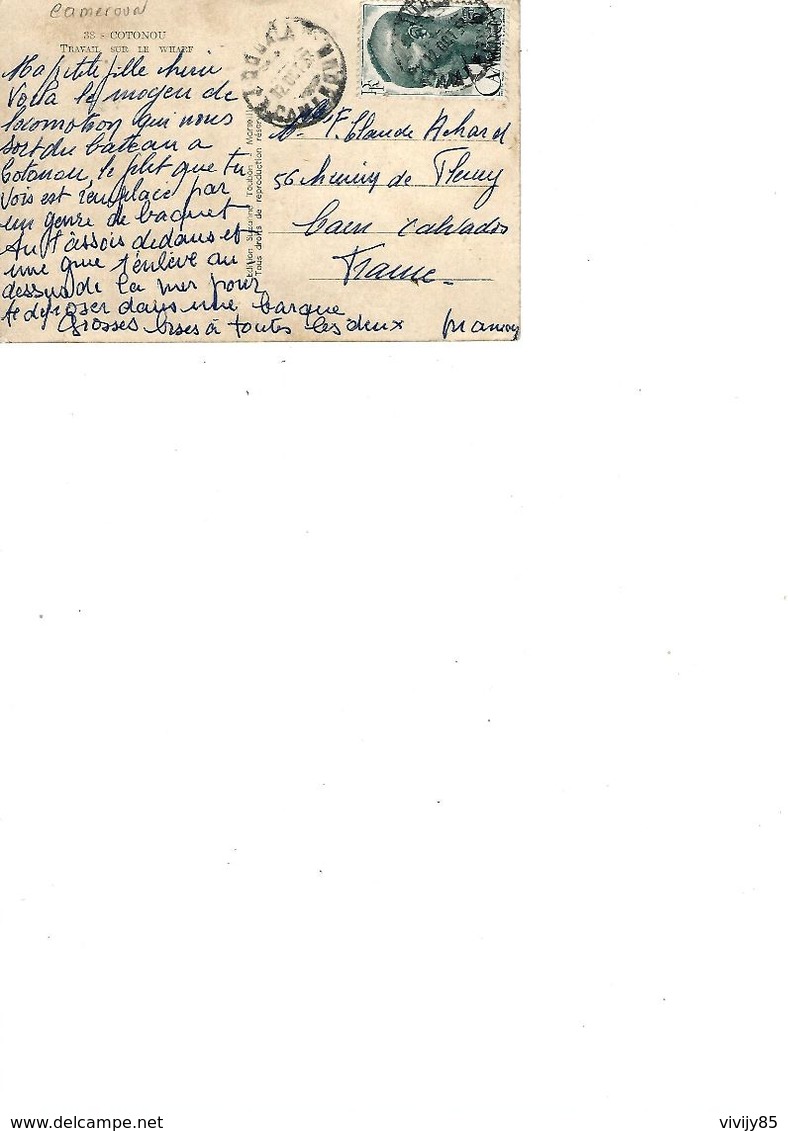 Cameroun
38 - COTONOU
TRAVAIL SUR LE WHARF
Ma petite fille cherie
Voila le moyen de
locomotion qui nous
sort du bateau a
Cotonou, le filet que tu
vois est remplacé par
un genre de baquet
tu t'assois dedans et
une grue t'enlève au
dessus de la mer pour
te deposer dans une barque
Grosses bises à toutes les deux
Maman
Edition Suzanne Toubon - Marseille
Tous droits de reproduction réser
DOUALA
CAMEROUN
RF
Claude Achard
56 chemin de Fleury
Caen Calvados
France
vivijy85